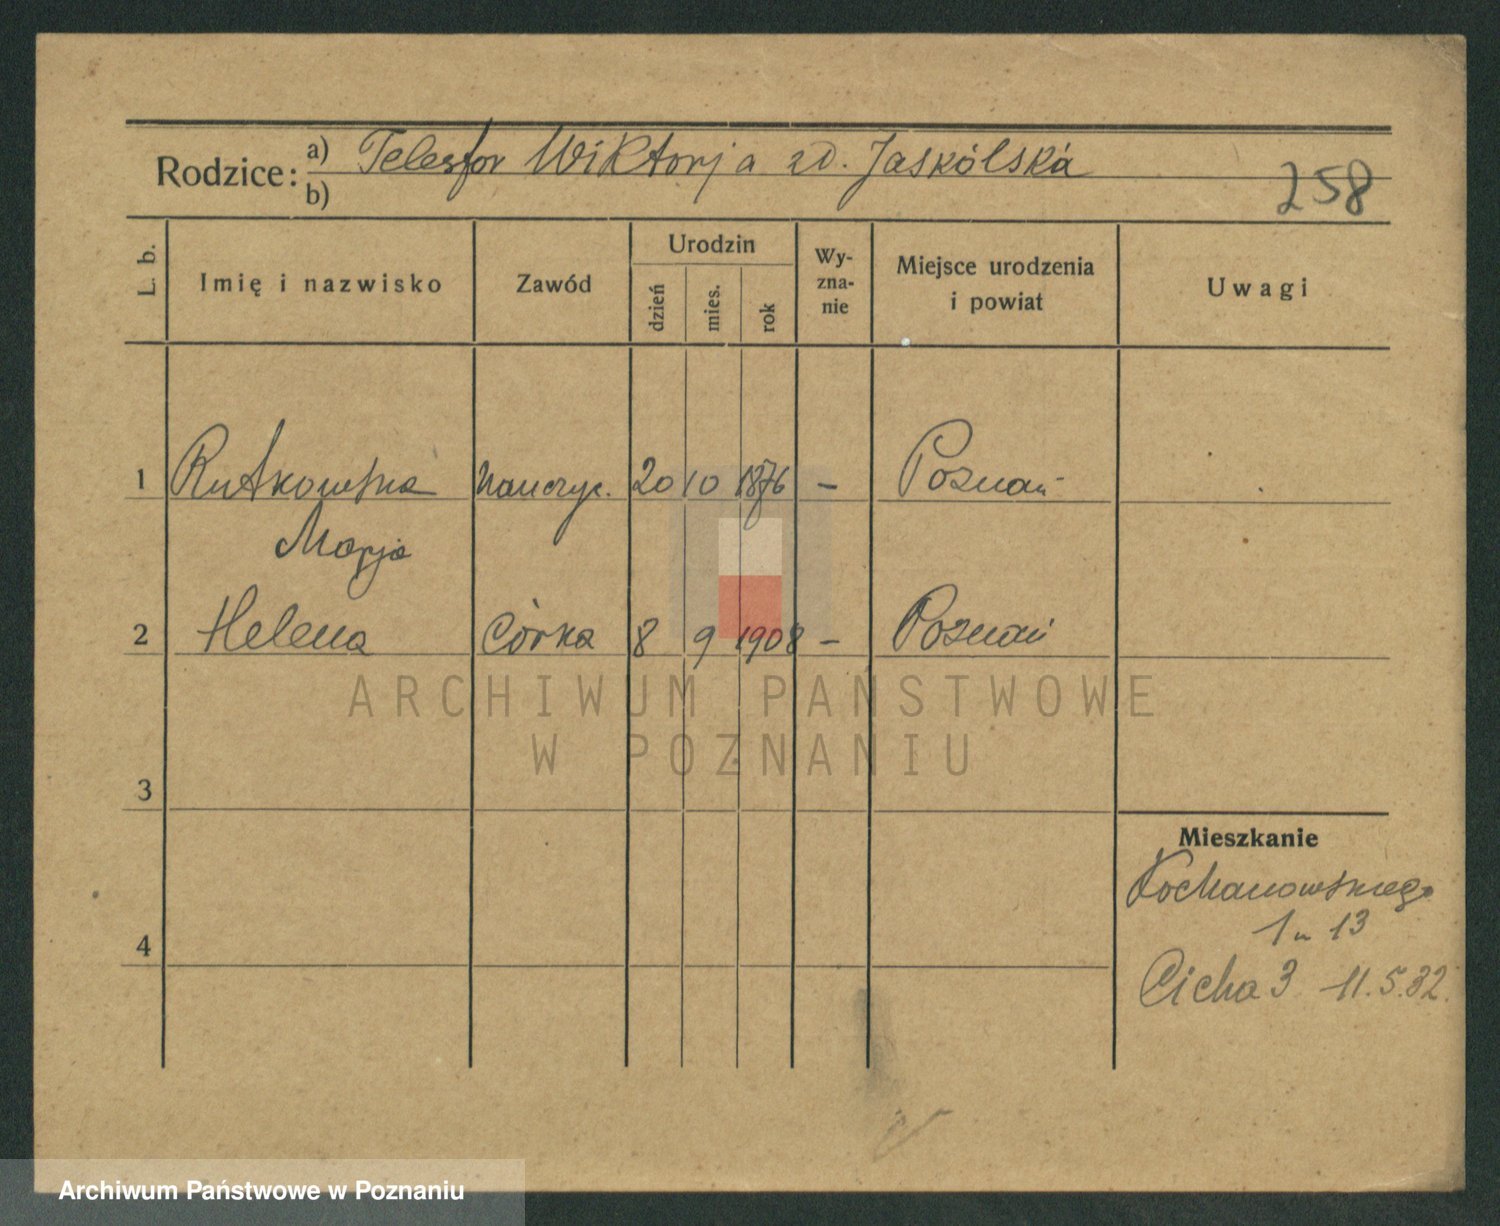 Rodzice: a) Telesfor Wiktorja zd. Jaskólska
b)
258
L. b. Imię i nazwisko Zawód Urodzin dzień mies. rok Wy-zna-nie Miejsce urodzenia i powiat Uwagi
1 Rutkowska Nauczyc. 20 10 1876 – Poznań
Marja
2 Helena Córka 8 9 1908 – Poznań
ARCHIWUM PAŃSTWOWE
W POZNANIU
3
Mieszkanie
Kochanowskiego
1 m 13
4
Cicha 3 11.5.32.
Archiwum Państwowe w Poznaniu